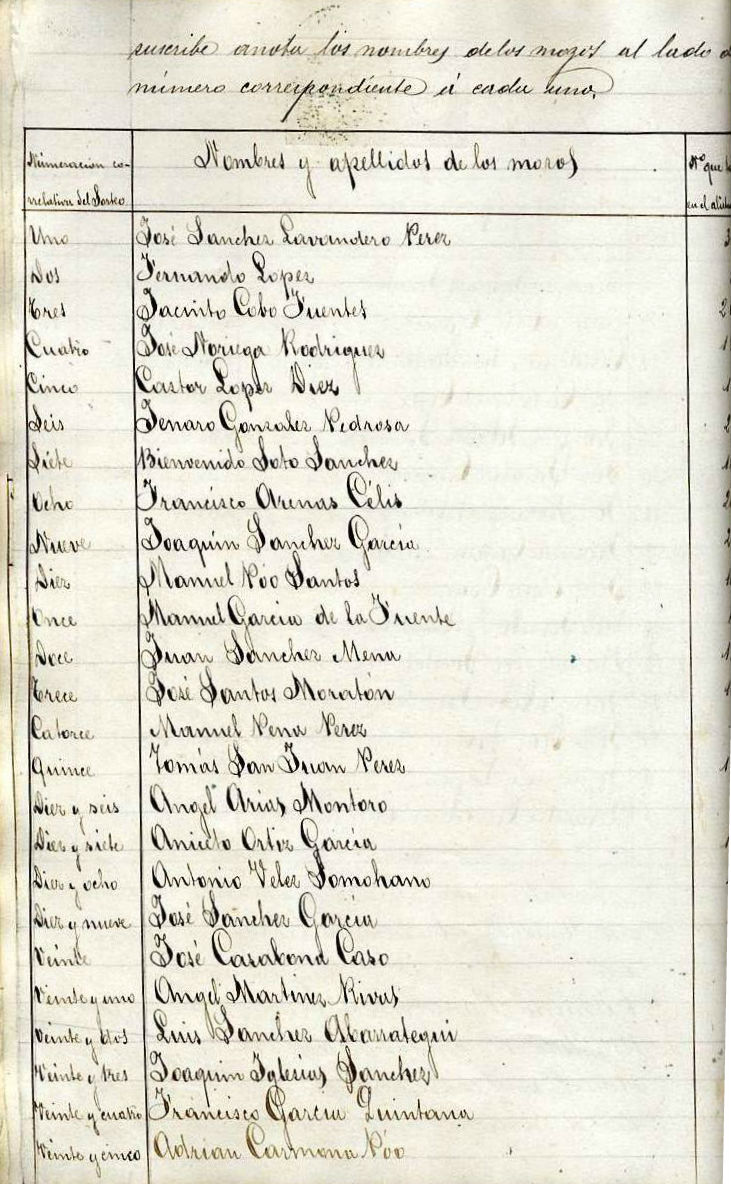 suscribe anota los nombres de los mozos al lado d
número correspondiente á cada uno.
Numeracion co-
rrelativa del Sorteo
Nombres y apellidos de los mozos
Nº que
en el
Uno José Sanchez Lavandero Perez
Dos Fernando Lopez
Tres Jacinto Cobo Fuentes
Cuatro José Noriega Rodriguez
Cinco Castor Lopez Diez
Seis Jenaro Gonzalez Pedrosa
Siete Bienvenido Soto Sanchez
Ocho Francisco Arenas Célis
Nueve Joaquín Sanchez García
Diez Manuel Póo Santos
Once Manuel Garcia de la Fuente
Doce Juan Sanchez Mena
Trece José Santos Moratón
Catorce Manuel Pena Perez
Quince Tomás San Juan Perez
Diez y seis Angel Arias Montoro
Diez y siete Aniceto Ortiz García
Diez y ocho Antonio Velez Somohano
Diez y nueve José Sanchez García
Veinte José Casabona Caso
Veinte y uno Angel Martinez Rivas
Veinte y dos Luis Sanchez Abarrategui
Veinte y tres Joaquin Iglesias Sanchez
Veinte y cuatro Francisco Garcia Quintana
Veinte y cinco Adrian Carmona Póo